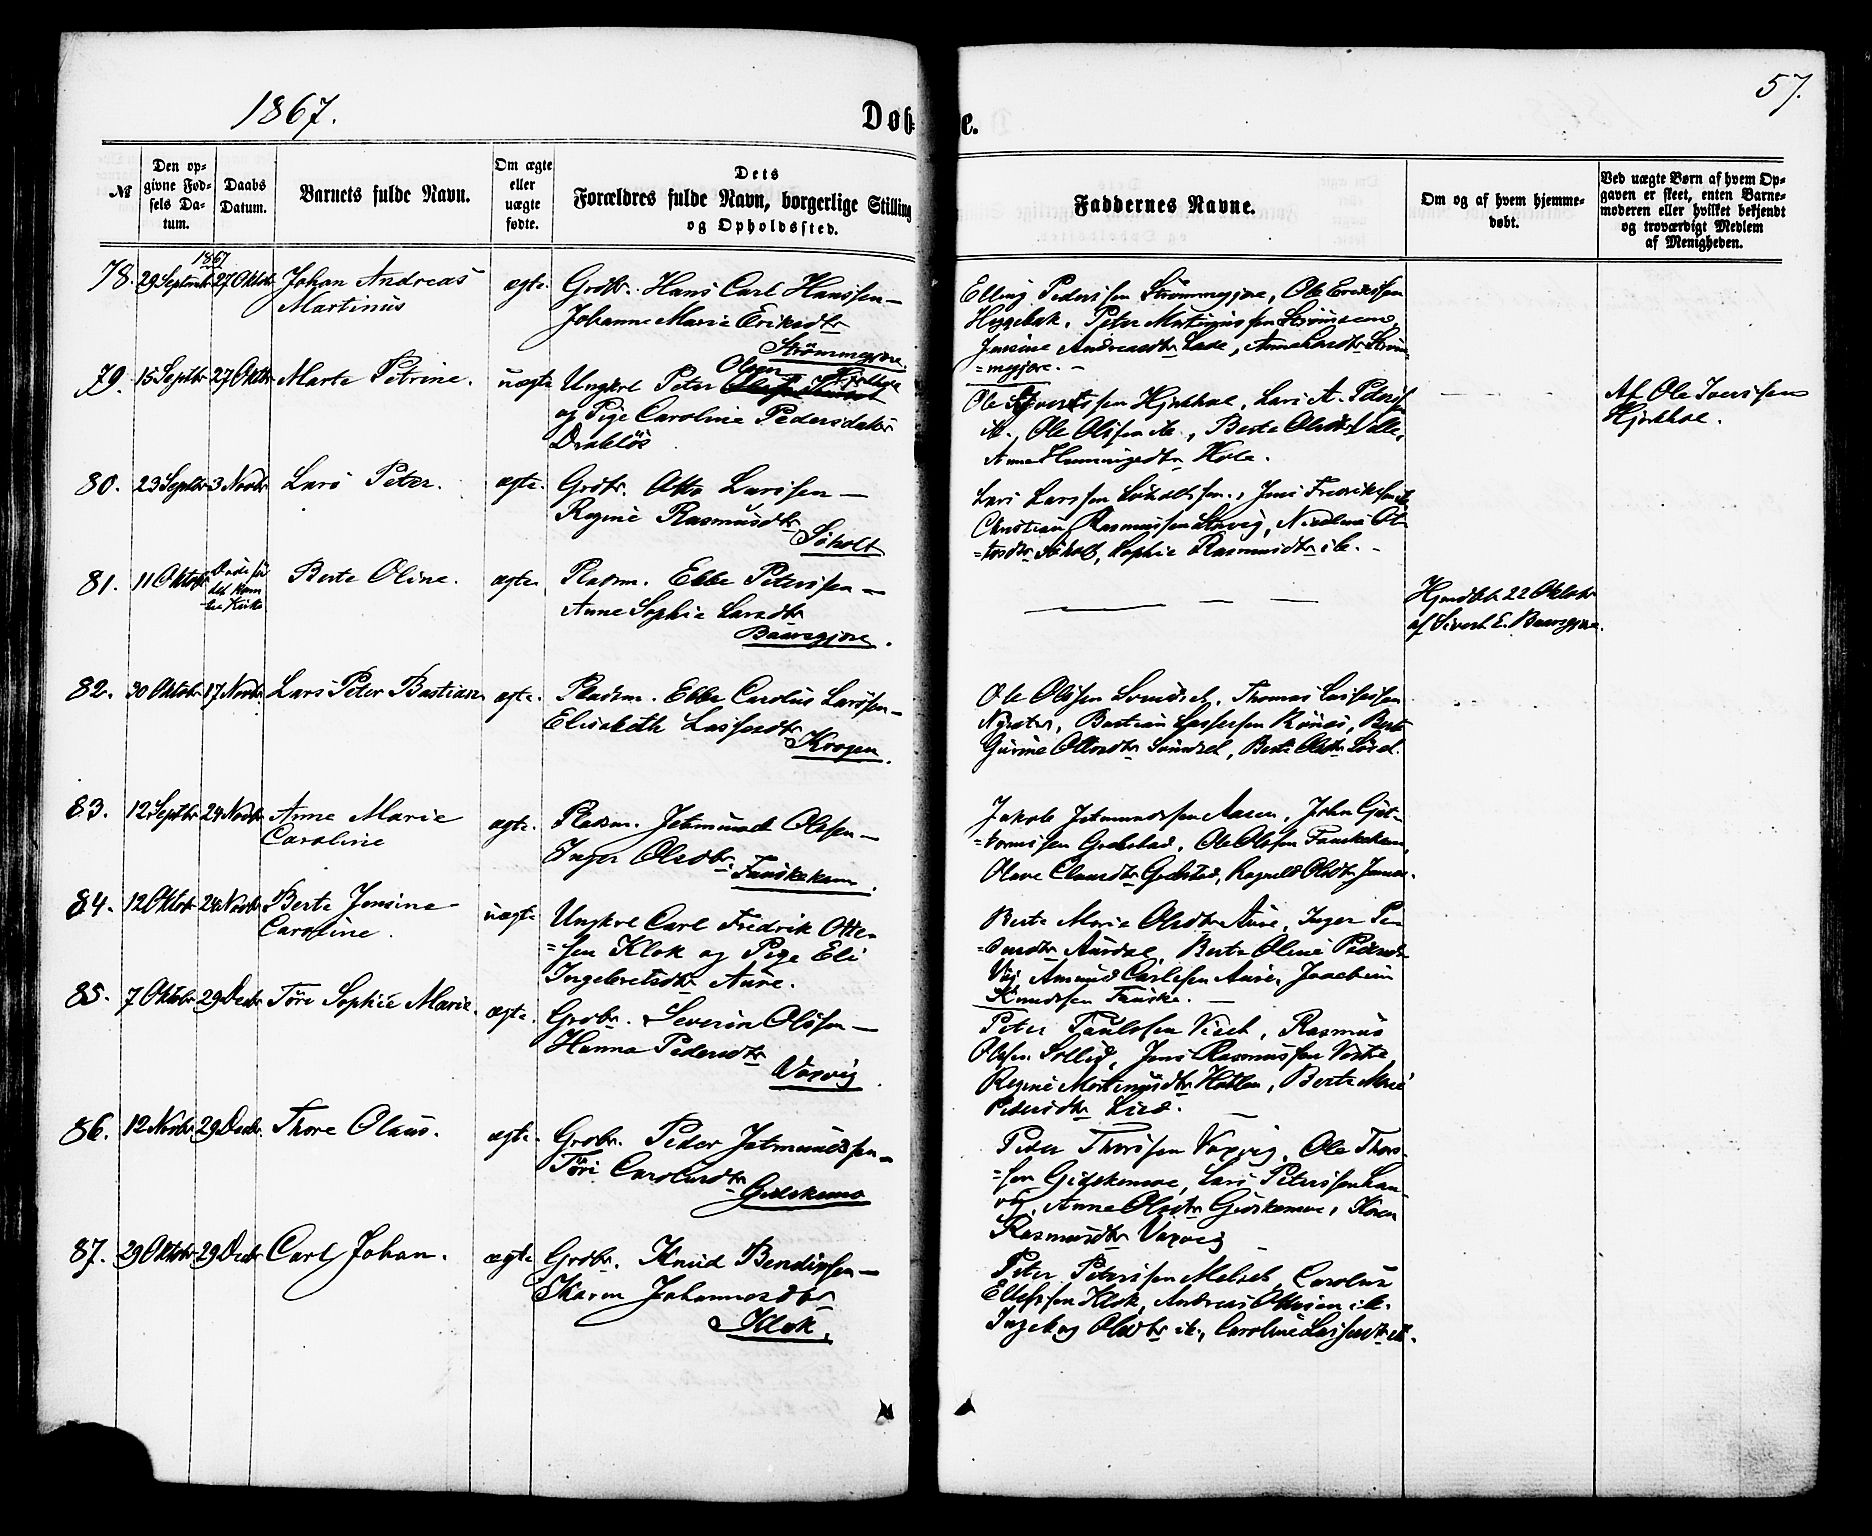 1867.
Døb-
e.
57.
№
Den op-
givne Fød-
sels Da-
tum.
Daabs
Datum.
Barnets fulde Navn.
Om ægte
eller
uægte
fødte.
Dets
Forældres fulde Navn, borgerlige Stilling
og Opholdssted.
Faddernes Navne.
Om og af hvem hjemme-
døbt.
Ved uægte Børn af hvem Op-
gaven er skeet, enten Barne-
moderen eller hvilket bekjendt
og troværdigt Medlem
af Menigheden.
1867
78. 29 Septmbr 27 Oktbr Johan Andreas ægte. Grdbr. Hans Carl Hanssen —
Martinus
Johanne Marie Eriksdtr
Strømmegjøre
Elling Pederssen Strømmegjøre, Ole Erekssen
Peter Martinussen
Jensine Andreasdtr Lade, Anne Larsdtr Strøm-
=megjøre. —
79. 15 Septbr 27 Oktbr Marte Petrine. uægte Ungkrl Peter Olsen
og Pige Caroline Pedersdatter
Drabløs
Ole Syvertssen Hjorthol, Lars A. Pederss
ib., Ole Olssen ib., Berte Olsdtr
Anne Hole.
Af Ole Iverssen
Hjorthol.
80. 23 Septbr 3 Novbr Lars Peter. ægte. Grdbr. Otto Larssen —
Regine Rasmusdtr
Søholt
Lars Larssen Jens Fredrikssen ib.
Christian Rasmussen Nicoline Ot-
=tosdtr Søholt, Sophie Rasmusdtr ib. -
81. 11 Oktobr Døde før
det kom
til Kirke
Berte Oline. ægte. Pladsm. Ebbe Peterssen —
Anne Sophie Larsdtr
Baarsgjøre.
Hjemdøbt 22 Oktobr
af Sivert E. Baarsgjøre.
82. 30 Oktobr 17 Novbr. Lars Peter Bastian ægte. Pladsm. Ebbe Carolus Larssen —
Elisabeth Lassesdtr
Krogen.
Ole Olssen Thomas Lassessen
Bastian Lassessen Rønes, Berte
Gurine Ottosdtr Berte Olsdtr
83. 12 Septbr 24 Novbr Anne Marie ægte. Pladsm. Jetmund Olssen —
Caroline
Inger Olsdtr.
Fauskekam.
Jakob Jetmundssen Aasen, John Gut-
=tormssen Grebstad, Ole Olssen Fauskekam,
Olave Clausdtr Grebstad, Ragnild Olsdtr
84. 12 Oktobr 24 Novbr Berte Jensine uægte Ungkrl Carl Fredrik Otte-
Caroline.
=sen Klok og Pige Eli
Ingebretsdtr Aure.
Berte Marie Olsdtr Aure, Inger Pe-
=dersdtr Aurdal, Berte Oline Pedersdtr
Vig, Amund Carlssen Aure, Joachim
Knudssen Fauske. —
85. 7 Oktobr 29 Decbr Tøri Sophie Marie. ægte. Grdbr. Severin Olssen —
Hanna Pedersdtr
Vaxvig.
Peter Paulssen Rasmus
Olssen Sollid, Jens Rasmussen
Regine Martinusdtr Berte Marie
Pedersdtr
86. 12 Novbr 29 Decbr. Thore Olaus. ægte. Grdbr. Peder Jetmundssen —
Tøri Carolusdtr
Gidskemo
Peder Thorssen Vaxvig, Ole Thors-
=sen Gidskemoe, Lars Peterssen Lan-
Anne Olsdtr Gidskemoe, Karen
Rasmusdtr Vaxvig
87. 29 Oktobr 29 Decbr Carl Johan. ægte Grdbr. Knud Bendixsen —
Karen Johannesdtr
Klok.
Peter Peterssen Melseth, Carolus
Ellefssen Klok, Andreas Ottesen ib.
Ingeborg Olsdtr ib., Caroline Lassesdtr ib.